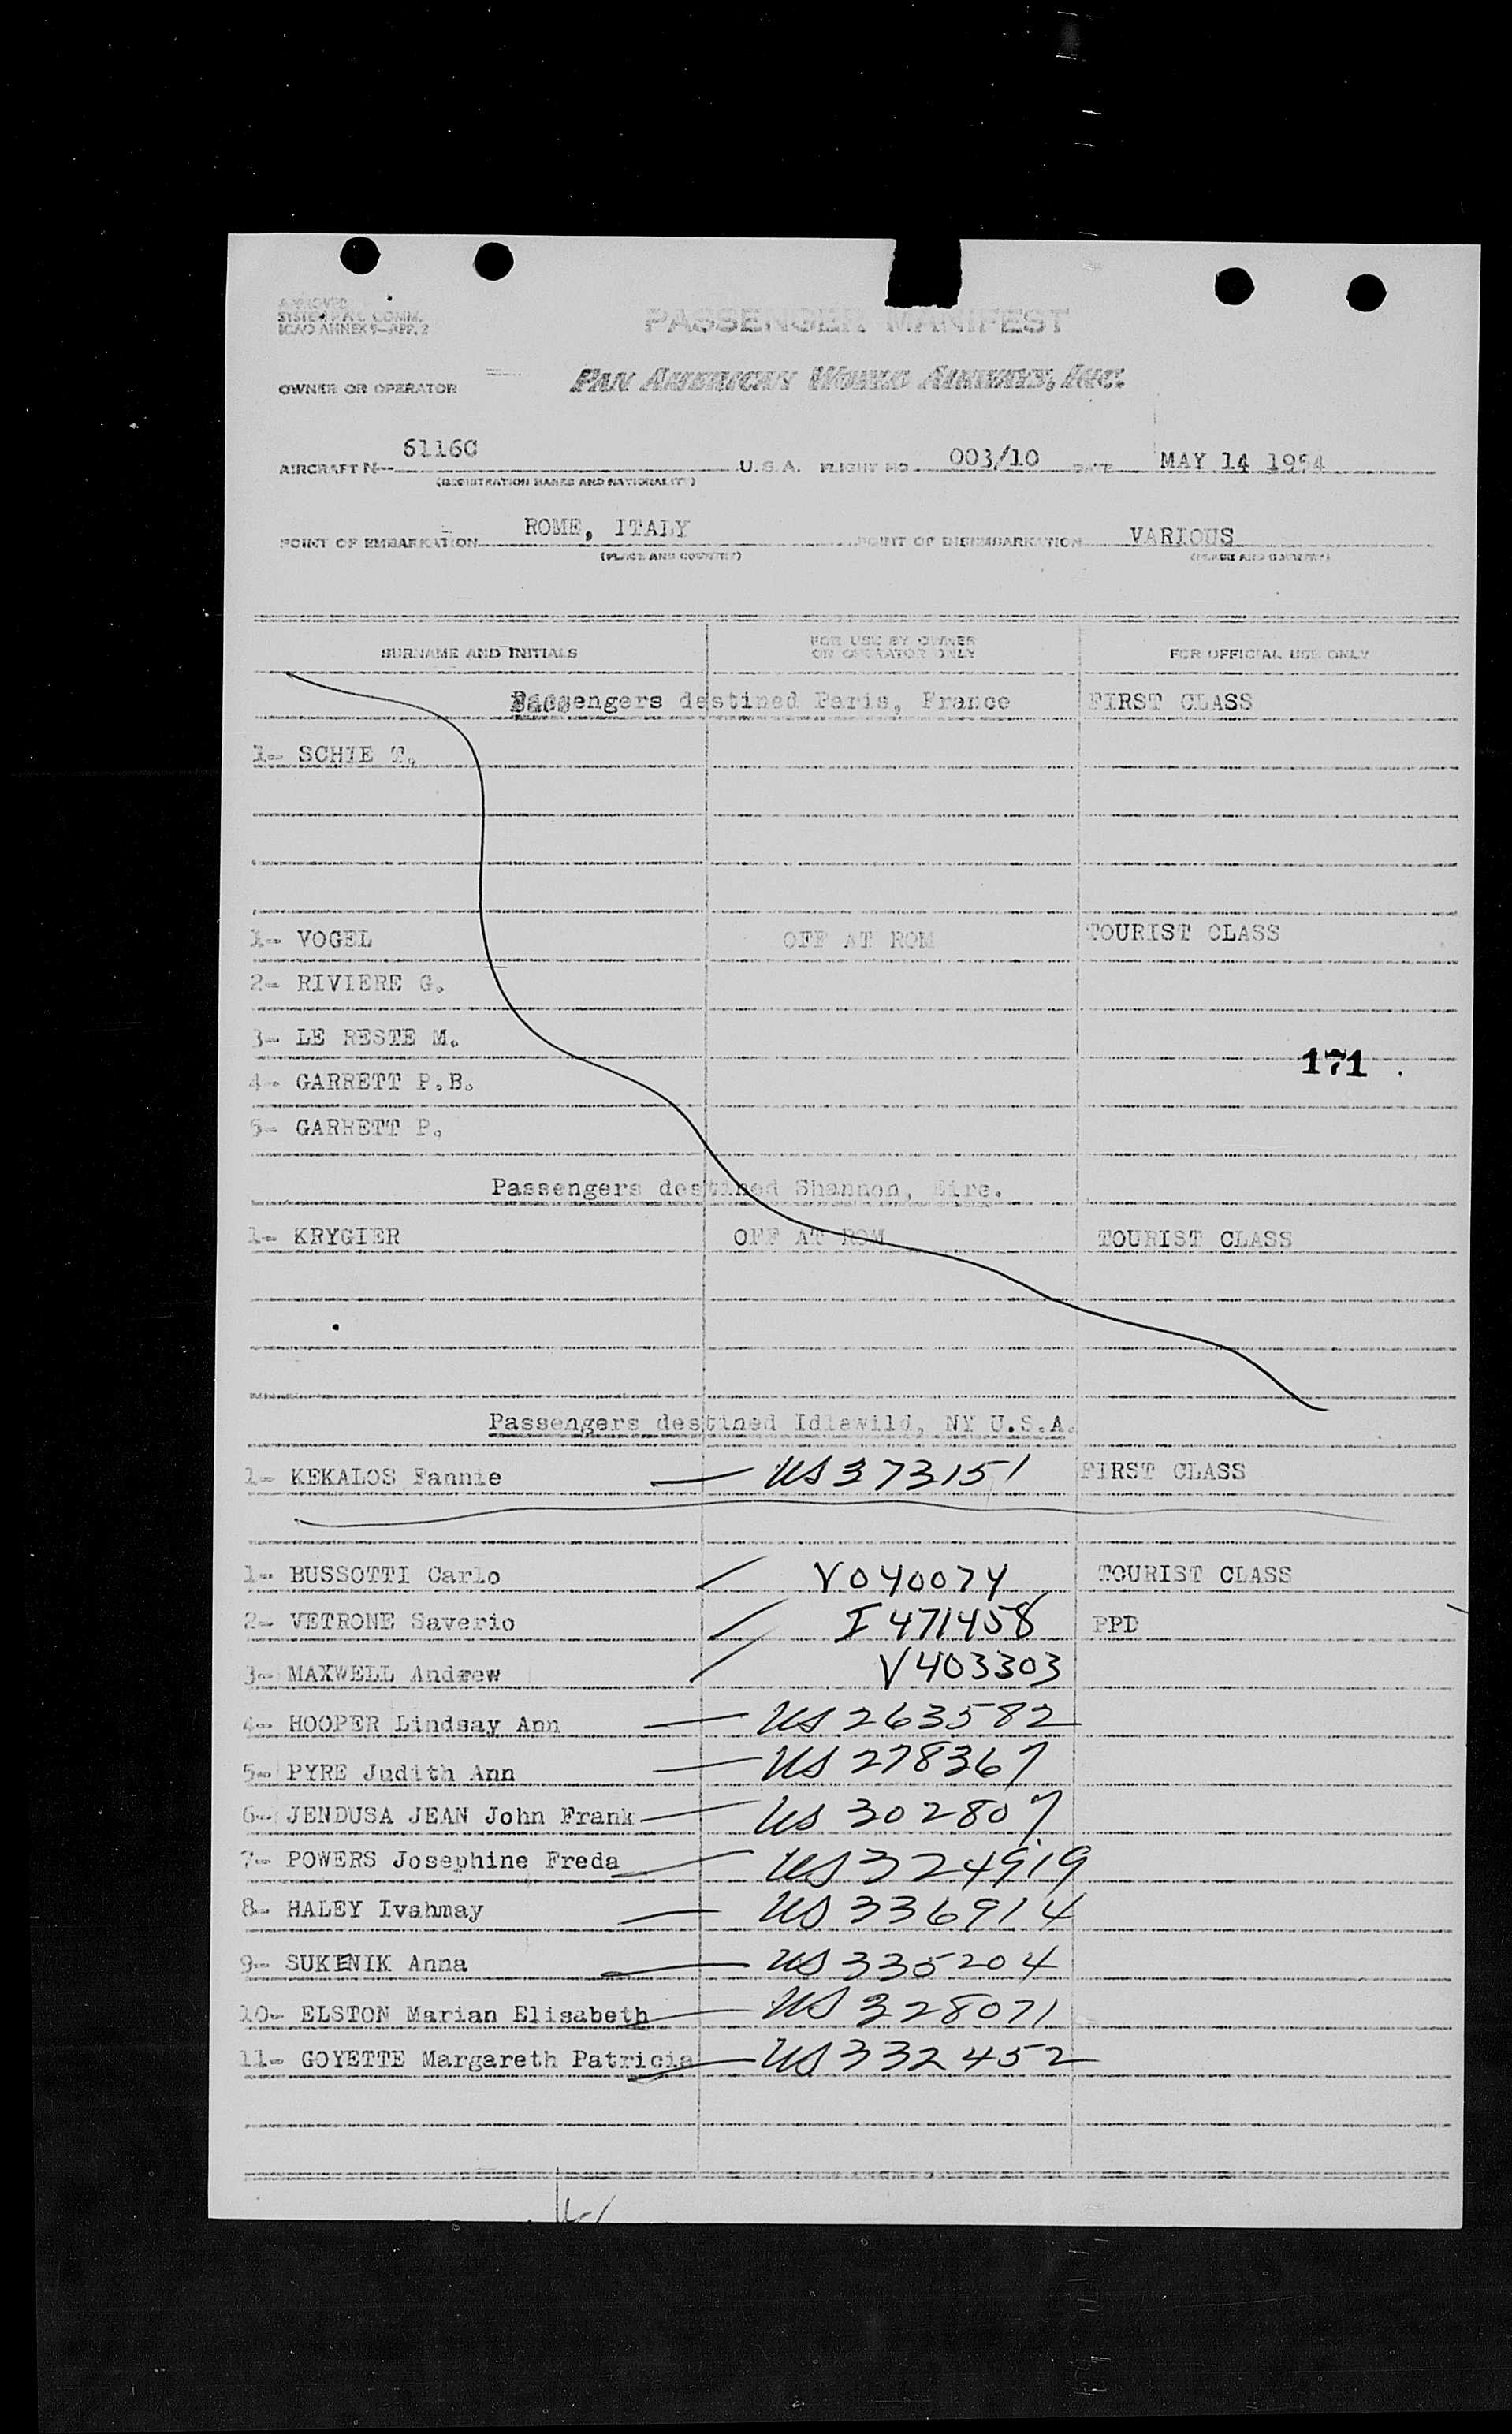 APPROVED
SYSTEM P.A.C. COMM.
ICAO ANNEX 9—APP. 2
PASSENGER MANIFEST
OWNER OR OPERATOR PAN AMERICAN WORLD AIRWAYS, INC.
AIRCRAFT N-- 6116C U.S.A. FLIGHT NO 003/10 DATE MAY 14 1954
(REGISTRATION MARKS AND NATIONALITY)
POINT OF EMBARKATION ROME, ITALY POINT OF DISEMBARKATION VARIOUS
(PLACE AND COUNTRY) (PLACE AND COUNTRY)
SURNAME AND INITIALS FOR USE BY OWNER OR OPERATOR ONLY FOR OFFICIAL USE ONLY
Passengers destined Paris, France FIRST CLASS
1- SCHIE T.
1- VOGEL OFF AT ROM TOURIST CLASS
2- RIVIERE G.
3- LE RESTE M.
171
4- GARRETT P.B.
5- GARRETT P.
Passengers destined Shannon, Eire.
1- KRYGIER OFF AT ROM TOURIST CLASS
Passengers destined Idlewild, NY U.S.A.
1- KEKALOS Fannie — US 373151 FIRST CLASS
1- BUSSOTTI Carlo / V040074 TOURIST CLASS
2- VETRONE Saverio / I 471458 PPD
3- MAXWELL Andrew / V403303
4- HOOPER Lindsay Ann — US 263582
5- PYRE Judith Ann — US 278367
6- JENDUSA JEAN John Frank — US 302807
7- POWERS Josephine Freda — US 324919
8- HALEY Ivahmay — US 336914
9- SUKENIK Anna — US 335204
10- ELSTON Marian Elisabeth — US 328071
11- GOYETTE Margareth Patricia — US 332452